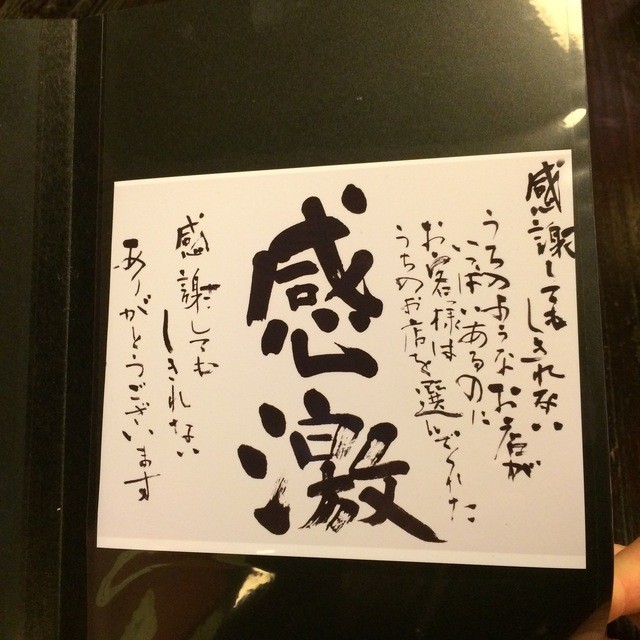 感謝しても
しきれない
うちのようなお店が
いっぱいあるのに
お客様は
うちのお店を選んでくれた
感激
感謝しても
しきれない
ありがとうございます